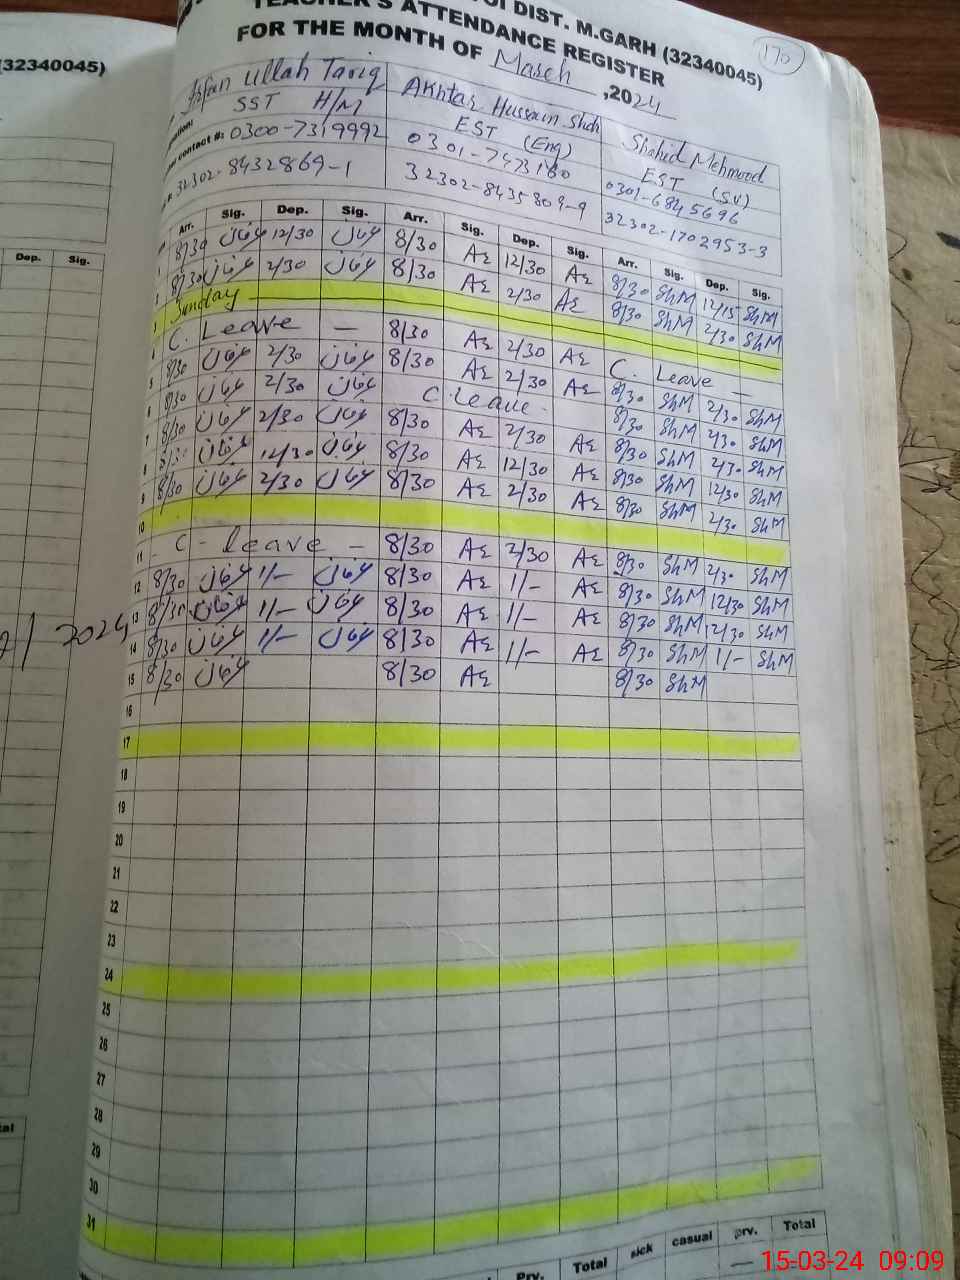 DIST. M.GARH (32340045)
TEACHER'S ATTENDANCE REGISTER
FOR THE MONTH OF March ,2024
170
(32340045)
Irfan Ullah Tariq Akhtar Hussain Shah Shahid Mehmood
SST H/M EST (Eng) EST (SV)
contact #: 0300-7319992 0301-7473160 0301-6845696
32302-8432869-1 32302-8435809-9 32302-1702953-3
Dep. Sig.
Arr. Sig. Dep. Sig. Arr. Sig. Dep. Sig. Arr. Sig. Dep. Sig.
1 8/30 12/30 8/30 AΣ 12/30 AΣ 8/30 ShM 12/15 ShM
2 8/30 2/30 8/30 AΣ 2/30 AΣ 8/30 ShM 2/30 ShM
3 Sunday
4 C. Leave — 8/30 AΣ 2/30 AΣ C. Leave —
5 8/30 2/30 8/30 AΣ 2/30 AΣ 8/30 ShM 2/30 ShM
6 8/30 2/30 C. Leave 8/30 ShM 2/30 ShM
7 8/30 2/30 8/30 AΣ 2/30 AΣ 8/30 ShM 2/30 ShM
8 8/30 12/30 8/30 AΣ 12/30 AΣ 8/30 ShM 12/30 ShM
9 8/30 2/30 8/30 AΣ 2/30 AΣ 8/30 ShM 2/30 ShM
10
11 - C - Leave - 8/30 AΣ 2/30 AΣ 8/30 ShM 2/30 ShM
12 8/30 1/- 8/30 AΣ 1/- AΣ 8/30 ShM 12/30 ShM
13 8/30 1/- 8/30 AΣ 1/- AΣ 8/30 ShM 12/30 ShM
2024
14 8/30 1/- 8/30 AΣ 1/- AΣ 8/30 ShM 1/- ShM
15 8/30 8/30 AΣ 8/30 ShM
16
17
18
19
20
21
22
23
24
25
26
27
28
29
30
31
Prv. Total sick casual prv. Total
15-03-24 09:09